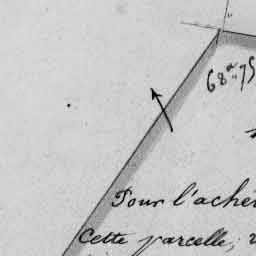 68 a 75
Pour l'achè
Cette parcelle,